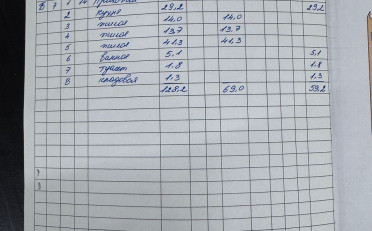 В 7 1 14 29,2 29,2
2 кухня 14,0 14,0
3 жилая 13,7 13,7
4 жилая 41,3 41,3
5 жилая
6 ванная 5,1 5,1
7 туалет 1,8 1,8
8 кладовая 1,3 1,3
128,2 69,0 59,2